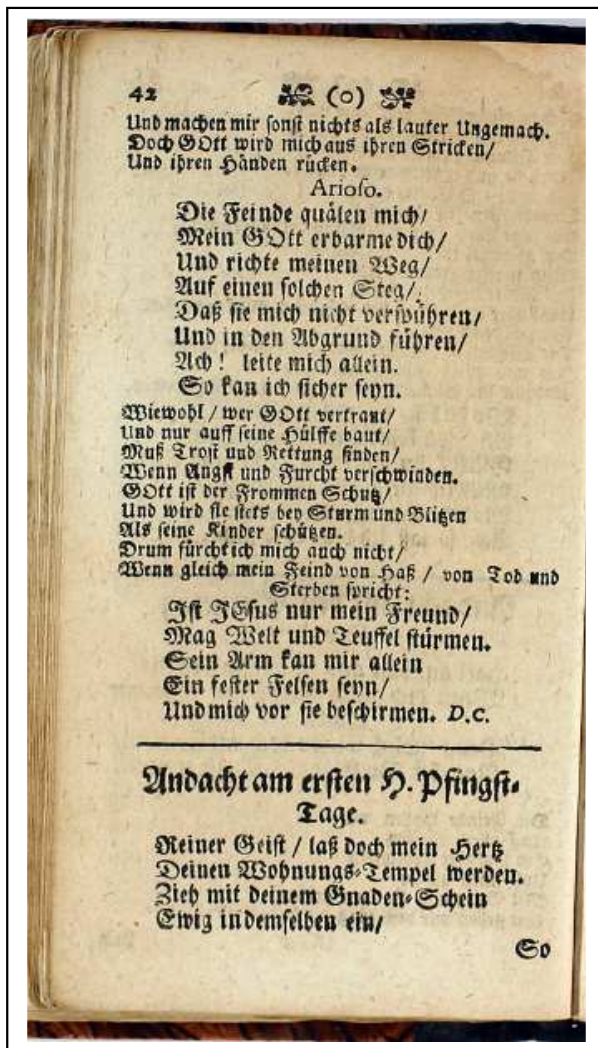 42 (o)
Und machen mir sonst nichts als lauter Ungemach.
Doch GOtt wird mich aus ihren Stricken/
Und ihren Händen rücken.
Arioso.
Die Feinde quälen mich/
Mein GOtt erbarme dich/
Und richte meinen Weg/
Auf einen solchen Steg/
Daß sie mich nicht verspühren/
Und in den Abgrund führen/
Ach! leite mich allein.
So kan ich sicher seyn.
Wiewohl / wer GOtt vertraut/
Und nur auff seine Hülffe baut/
Muß Trost und Rettung finden/
Wenn Angst und Furcht verschwinden.
GOtt ist der Frommen Schutz/
Und wird sie stets bey Sturm und Blitzen
Als seine Kinder schützen.
Drum fürcht ich mich auch nicht/
Wenn gleich mein Feind von Haß / von Tod und
Sterben spricht:
Ist JEsus nur mein Freund/
Mag Welt und Teuffel stürmen.
Sein Arm kan mir allein
Ein fester Felsen seyn/
Und mich vor sie beschirmen. D.C.
Andacht am ersten H. Pfingst-
Tage.
Reiner Geist / laß doch mein Hertz
Deinen Wohnungs-Tempel werden.
Zieh mit deinem Gnaden-Schein
Ewig in demselben ein/
So